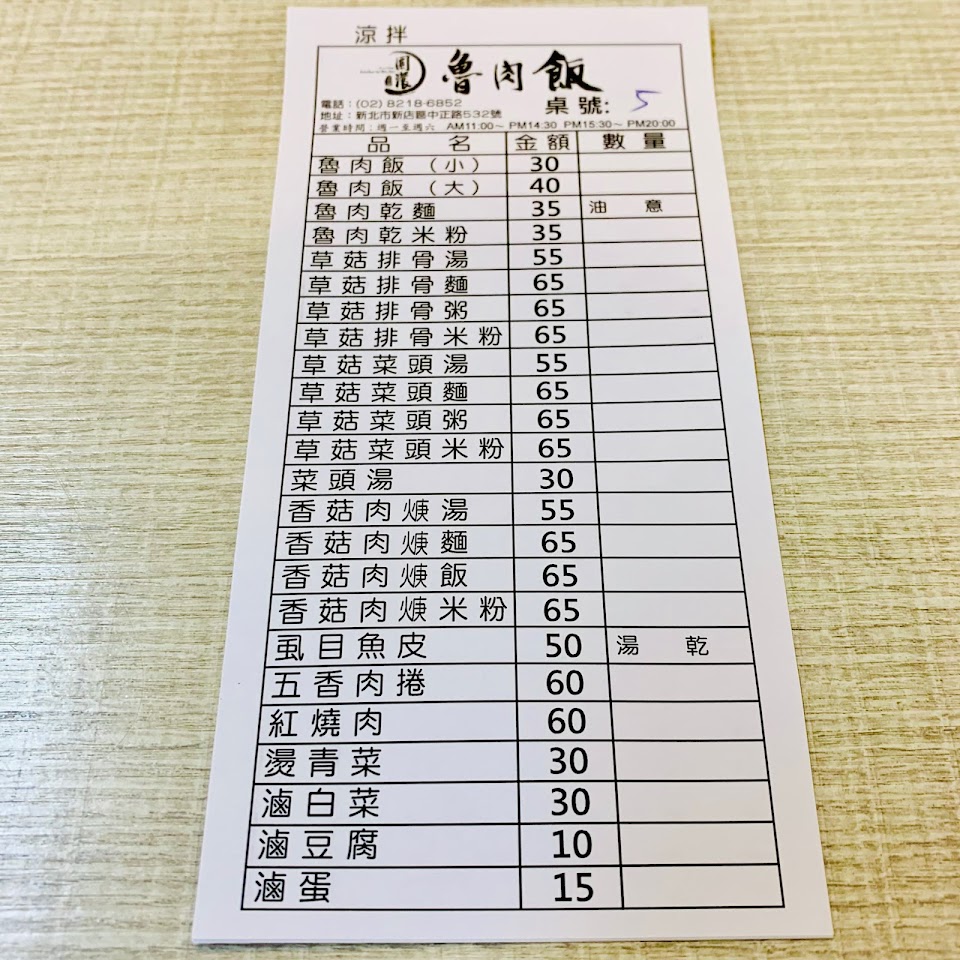 涼拌
魯肉飯
桌號: 5
電話：(02) 8218-6852
地址：新北市新店區中正路532號
營業時間：週一至週六 AM11:00～ PM14:30 PM15:30～ PM20:00
品名 金額 數量
魯肉飯（小） 30
魯肉飯（大） 40
魯肉乾麵 35 油 意
魯肉乾米粉 35
草菇排骨湯 55
草菇排骨麵 65
草菇排骨粥 65
草菇排骨米粉 65
草菇菜頭湯 55
草菇菜頭麵 65
草菇菜頭粥 65
草菇菜頭米粉 65
菜頭湯 30
香菇肉焿湯 55
香菇肉焿麵 65
香菇肉焿飯 65
香菇肉焿米粉 65
虱目魚皮 50 湯 乾
五香肉捲 60
紅燒肉 60
燙青菜 30
滷白菜 30
滷豆腐 10
滷蛋 15